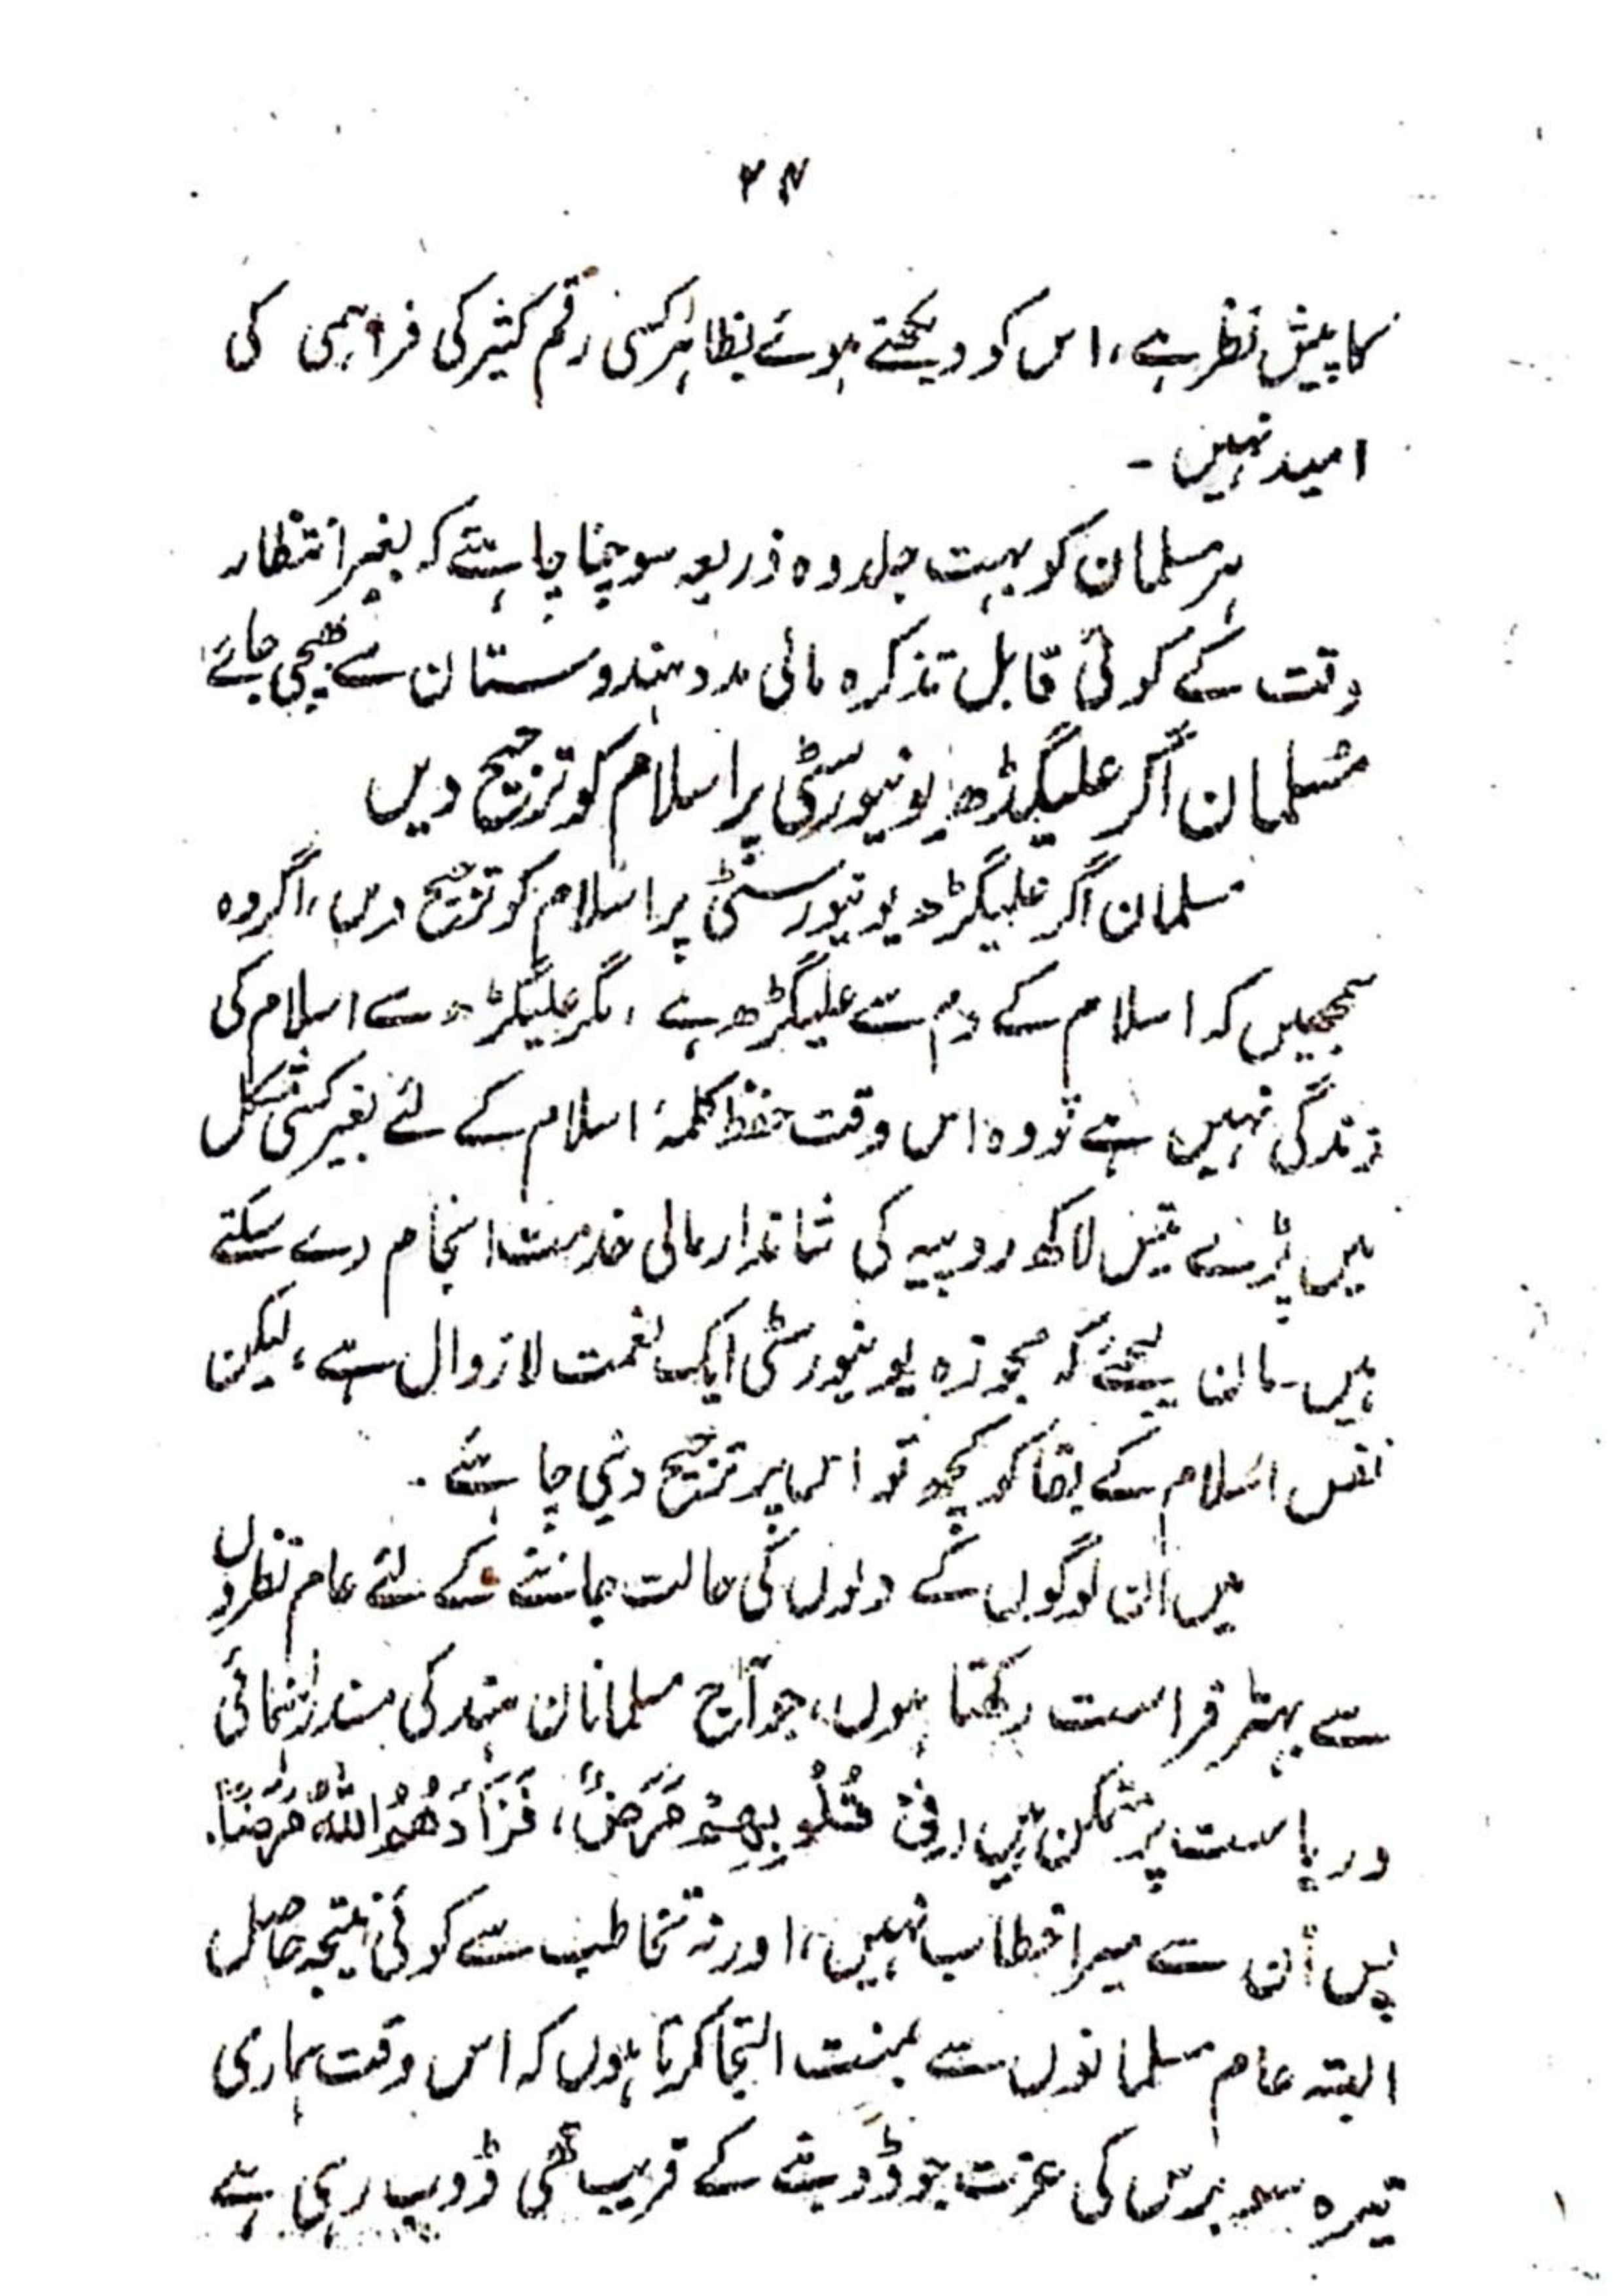 ۲۷
کا پیش نظر ہے، اس کو دیکھتے ہوئے بظاہر کسی رقم کثیر کی فراہمی کی
امید نہیں۔
ہر مسلمان کو بہت جلد وہ ذریعہ سوچنا چاہئے کہ بغیر انتظار
وقت کے کوئی قابل تذکرہ مالی مدد ہندوستان سے بھیجی جائے
مسلمان اگر علیگڈھ یونیورسٹی پر اسلام کو ترجیح دیں
مسلمان اگر علیگڑھ یونیورسٹی پر اسلام کو ترجیح دیں، اگر وہ
سمجھیں کہ اسلام کے دم سے علیگڑھ ہے، مگر علیگڑھ سے اسلام کی
زندگی نہیں ہے تو وہ اس وقت حفظ کلمۂ اسلام کے لئے بغیر کسی مشکل
میں پڑے تیس لاکھ روپیہ کی شاندار مالی خدمت انجام دے سکتے
ہیں۔ مان لیجئے کہ مجوزہ یونیورسٹی ایک نعمت لازوال ہے، لیکن
نفس اسلام کے بقا کو کچھ تو اس پر ترجیح دینی چاہئے۔
میں ان لوگوں کے دلوں کی حالت جاننے کے لئے عام نظروں
سے بہتر فراست رکھتا ہوں، جو آج مسلمانان ہند کی مسند راہنمائی
و ریاست پر متمکن ہیں (فِیْ قُلُوْبِهِمْ مَرَضٌ، فَزَادَهُمُ اللّٰهُ مَرَضًا۔
پس اُن سے میرا خطاب نہیں، اور نہ تخاطب سے کوئی نتیجہ حاصل
البتہ عام مسلمانوں سے بمنت التجا کرتا ہوں کہ اس وقت ہماری
تیرہ سو برس کی عزت جو ڈوبنے کے قریب تھی ڈوب رہی ہے